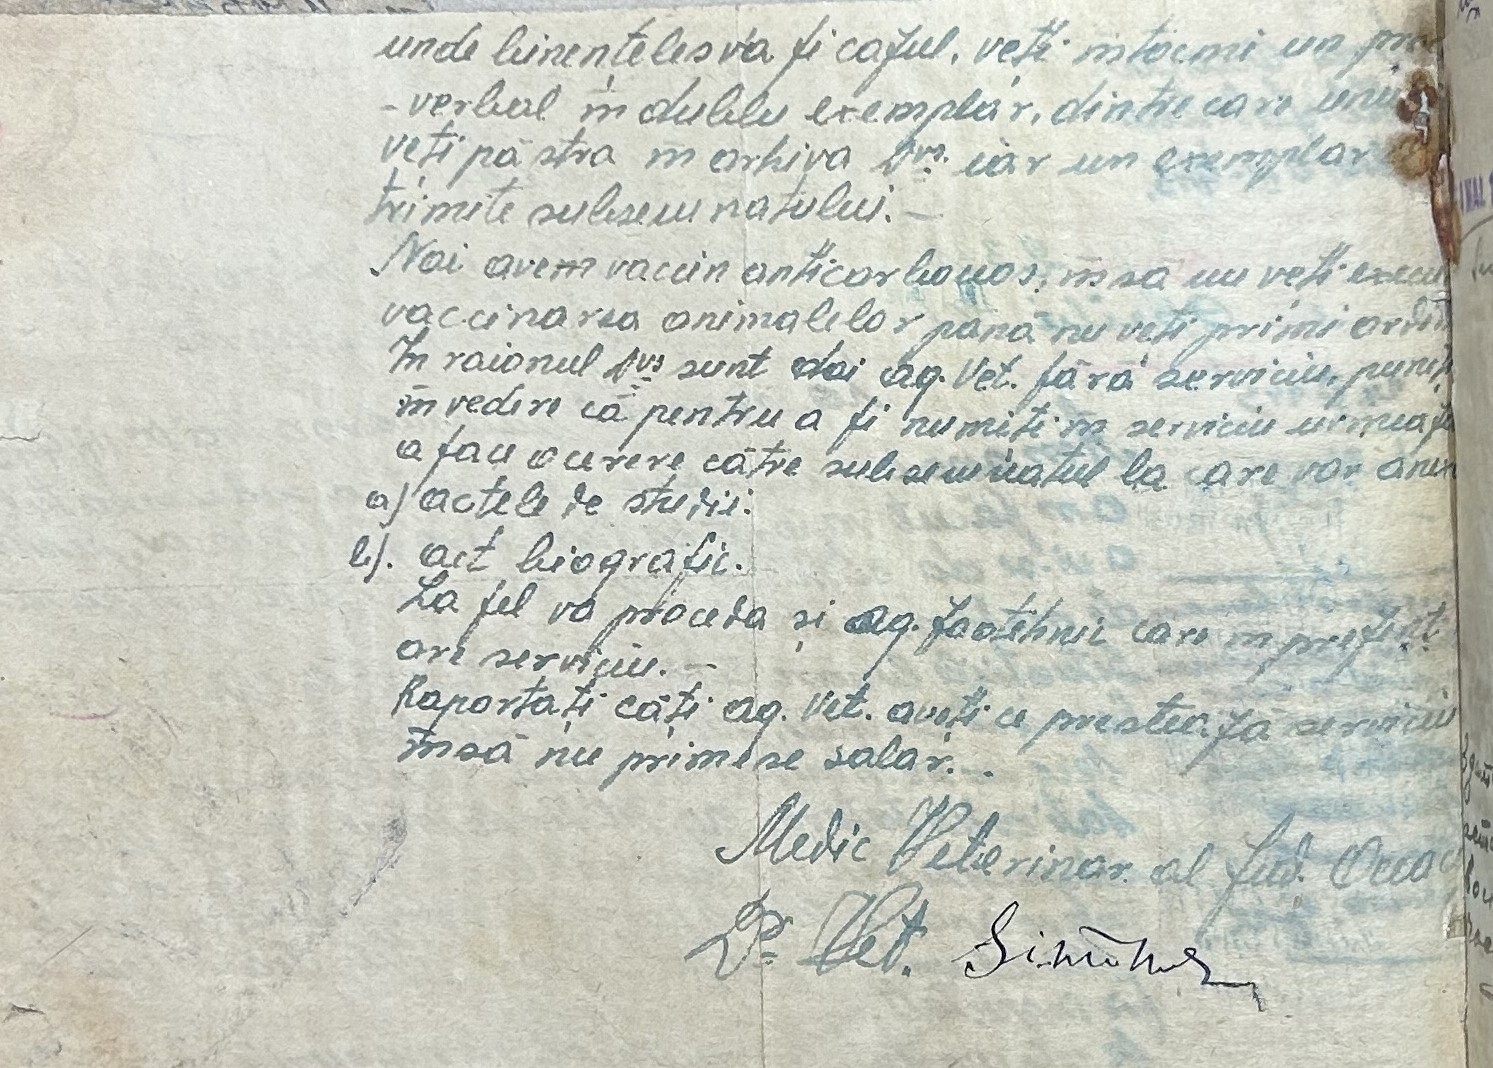 unde bineînțeles va fi cazul, veți întocmi un
-verbal în dublu exemplar, dintre care unu
veți păstra în arhiva Dvs. iar un exemplar
trimite subsemnatului. —
Noi avem vaccin anticarbonos, însă nu veți
vaccinarea animalelor până nu veți primi
În raionul Dvs sunt doi ag. Vet. fără serviciu,
în vedere că pentru a fi numiți în serviciu
a face o cerere către subsemnatul la care vor
a) actele de studii.
b). act biografic.
La fel va proceda și ag. zootehnic care în prezent
are serviciu. —
Raportați câți ag. Vet. aveți ce prestează serviciu
însă nu primesc salar. —
Medic Veterinar al Jud.
Dr. Vet.